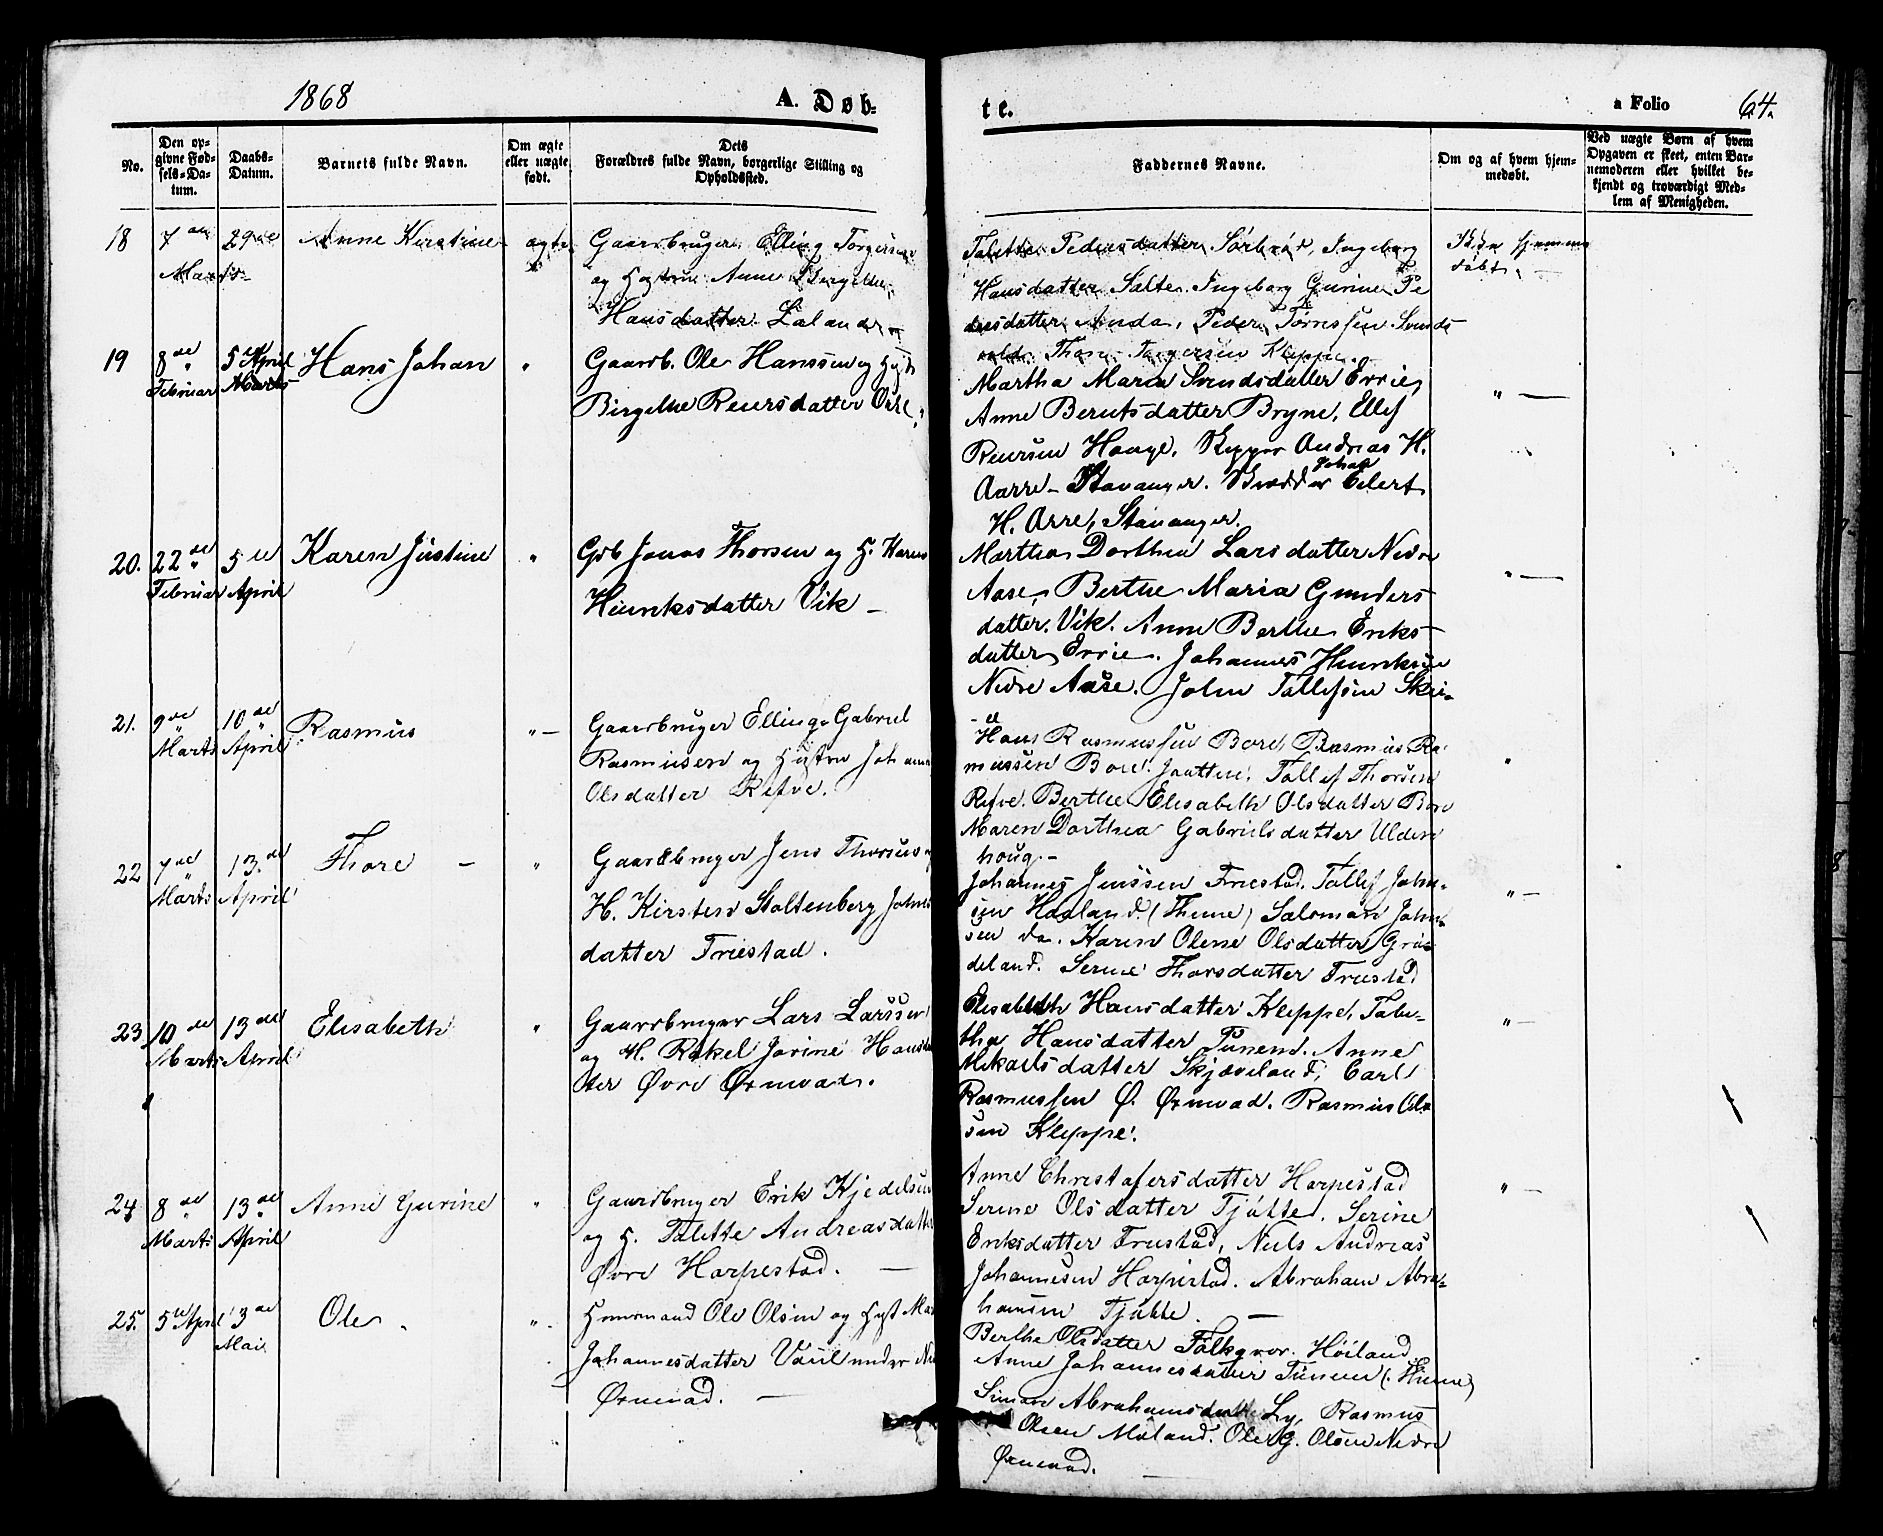 1868
A. Døb-
te.
a Folio 64.
No.
Den op-
givne Fød-
sels-Da-
tum.
Daabs-
Datum.
Barnets fulde Navn.
Om ægte
eller uægte
født.
Dets
Forældres fulde Navn, borgerlige Stilling og
Opholdssted.
Faddernes Navne.
Om og af hvem hjem-
medøbt.
Ved uægte Børn af hvem
Opgaven er skeet, enten Bar-
nemoderen eller hvilket be-
kjendt og troværdigt Med-
lem af Menigheden.
18
29de
Marts
Anne Kirstine
ægte
Gaardbruger Elling Torgersen
og Hustru Anne Birgithe
Hansdatter Laland
Talette Pedersdatter Sørbrød, Ingeborg
Hansdatter Salte. Ingeborg Gurine Pe
dersdatter Anda, Peder Tørressen Svinds
vold. Thore Torgersen Kleppe.
Ikke hjemme
døbt.
19
8de
Februar
5te April
Marts
Hans Johan
"
Gaardb. Ole Hanssen og Hust
Birgithe Reiersdatter Orre
Martha Maria Svendsdatter Erri
Anne Berntsdatter Bryne, Ellef
Reiersen Hauge. Skipper Andreas H.
Aarre - Stavanger. Johan Eilert
H. Orre, Stavanger.
" —
20.
22de
Februar
5te
April
Karen Justine
"
Gdb Jonas Thorsen og H. Karen
Henriksdatter Vik —
Martha Dorthea Larsdatter Nedre
Aase, Berthe Maria Gunders
datter. Vik. Anne Berthe Eriks-
datter Errie. Johannes Henriksen
Nedre Aase. John Tollefsen Skei-
" —
21.
9de
Marts
10de
April
Rasmus
" —
Gaardbruger Elling Gabriel
Rasmusen og Hustru Johanne
Olsdatter Refve.
Hans Rasmussen Bore, Rasmus Ra
mussen Bore. Jaatten. Tollef Thorsen
Refve. Berthe Elisabeth Olsdatter Bore
Maren Dorthea Gabrielsdatter Ulden
houg. -
"
22
7de
Marts
13de
April
Thore —
"
Gaardbruger Jens Thorsen og
H. Kirsten Stoltenberg Johns
datter Friestad.
Johannes Jenssen Friestad. Tollef John-
sen Haaland (Thime) Saloman John
sen do. Karen Olene Olsdatter Grø-
deland. Serine Thorsdatter Friestad
" —
23
10de
Marts
13de
April
Elisabeth
"
Gaardbruger Lars Larssen
og H. Rakel Jorine Hansdat
ter Øvre Øxnevad.
Elisabeth Hansdatter Kleppe, Tabe-
tha Hansdatter Tunem. Anne
Mikaelsdatter Skjæveland, Carl
Rasmussen Ø. Øxnevad. Rasmus Ole
sen Kleppe.
" —
24
8de
Marts
13de
April
Anne Gurine
"
Gaardbruger Erik Kjedelsen
og H. Talette Andreasdatter
Øvre Horpestad. —
Anne Christofersdatter Horpestad
Serine Olsdatter Tjøtte. Serine
Eriksdatter Friestad, Niels Andreas
Johannesen Horpestad. Abraham Abra-
hamsen Tjøtte. —
" —
25.
5te April
3de
Mai
Ole.
" .
Huusmand Ole Olsen og Hust Mar
Johannesdatter Vaule under Ne
Øxnevad. —
Berthe Olsdatter Folkvor. Høiland
Anne Johannesdatter Tunem (Hinne)
Simon Abrahamsdatter Ly, Rasmus
Olsen Møland. Ole G. Olsen Nedre
Øxnevad. —